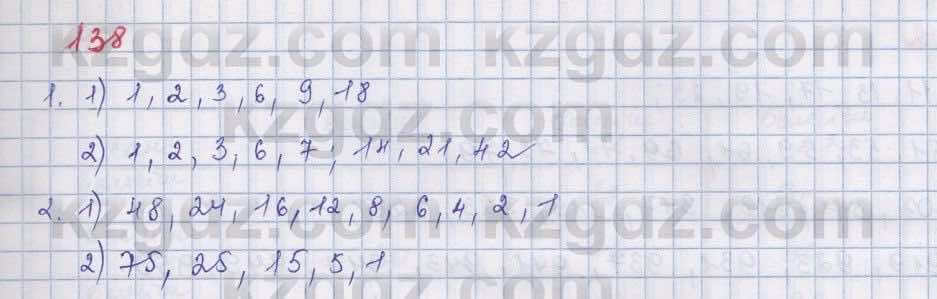 138
1. 1) 1, 2, 3, 6, 9, 18
2) 1, 2, 3, 6, 7, 14, 21, 42
2. 1) 48, 24, 16, 12, 8, 6, 4, 2, 1
2) 75, 25, 15, 5, 1
kzgdz.com kzgdz.com
kzgdz.com
kzgdz.com kzgdz.com
kzgdz.com